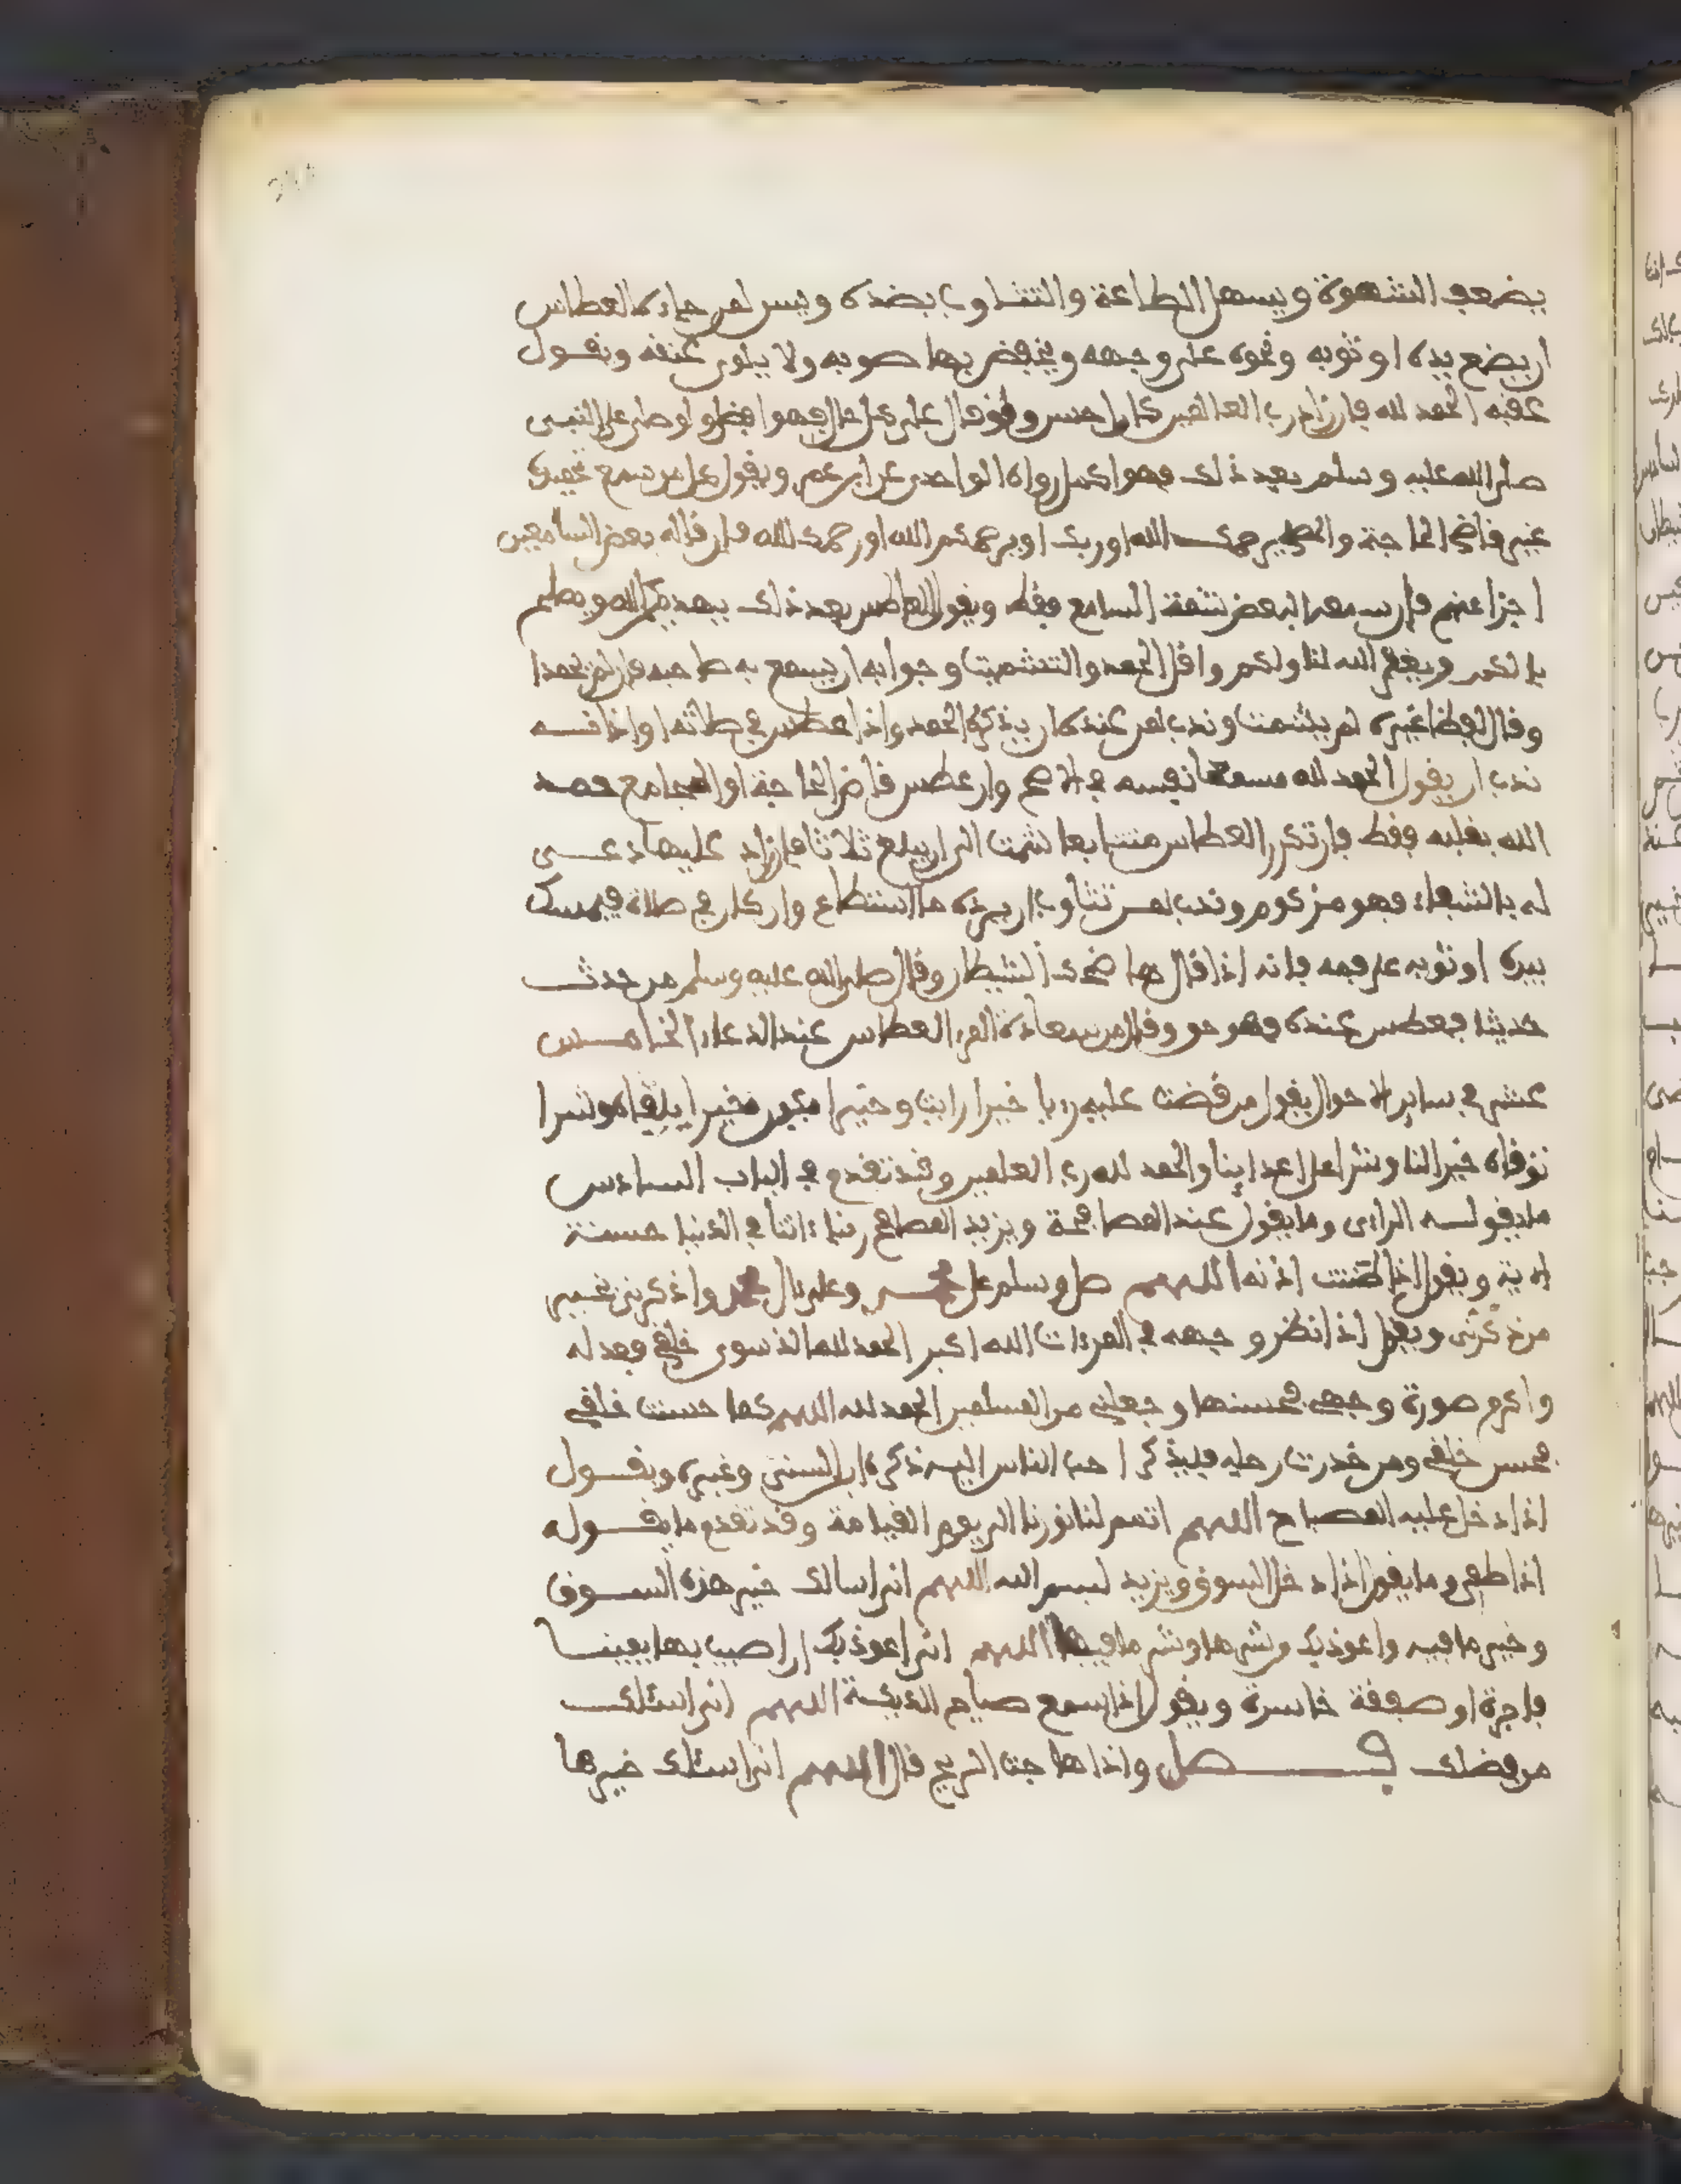 يضعف الشهوة ويسهل الطاعة والتثاوب بضده ويسن لمن جاءه العطاس
ان يضع يده او ثوبه ونحوه على وجهه ويخفض بها صوته ولا يلوى عنقه ويقول
عقبه الحمد لله فان زاد رب العالمين كان احسن ولو قال على كل حال فهو افضل ولو صلى على النبى
صلى الله عليه وسلم بعد ذلك فهو اكمل رواه الواحدى عن ابن عمر ويقول كل من سمع تحميده
غير قاضى الحاجة يرحمك الله او ربك او يرحمكم الله او رحمك الله فان قاله بعض السامعين
اجزا عنهم فان سمعه البعض شمته السامع فقط ويقول العاطس بعد ذلك يهديكم الله ويصلح
بالكم ويغفر الله لنا ولكم واقل الحمد والتشميت وجوابه ان يسمع به صاحبه فان لم يحمد
وقال لفظا غيره لم يشمت وندب لمن عنده ان يذكره الحمد واذا عطس في صلاته او اذا نسه
ندب ان يقول الحمد لله مسمعا نفسه في الاصح وان عطس قاضى الحاجة او المجامع حمد
الله بقلبه فقط فان تكرر العطاس متتابعا شمت الى ان يبلغ ثلاثا فان زاد عليها دعى
له بالشفاء فهو مزكوم وندب لمن تثاوب ان يرده ما استطاع وان كان في صلاة فيمسك
بيده او ثوبه على فمه فانه اذا قال ها ضحك الشيطان وقال صلى الله عليه وسلم من حدث
حديثا فعطس عنده فهو حق وقال من سعادة المرء العطاس عند الدعاء الخامس
عشر في سائر الاحوال يقول من قصت عليه رءيا خيرا رايت وخيرا يكون خيرا يلقاه وشرا
توقاه خير لنا وشر على اعداينا والحمد لله رب العلمين وقد تقدم في الباب السادس
ما يقوله الراءى وما يقول عند المصافحة ويزيد المصافح ربنا ءاتنا في الدنيا حسنة
الاية ويقول اذا طنت اذنه اللهم صل وسلم على محمد وعلى ءال محمد واذكرنى بخير
من ذكرنى ويقول اذا نظر وجهه في المرءات الله اكبر الحمد لله الذى سوى خلقى فعدله
واكرم صورة وجهى فحسنها وجعلنى من المسلمين الحمد لله اللهم كما حسنت خلقى
فحسن خلقى ومن خدرت رجله فليذكر احب الناس اليه ذكره ابن السنى وغيره ويقول
اذا دخل عليه المصباح اللهم اتمم لنا نورنا الى يوم القيامة وقد تقدم ما يقوله
اذا طفى وما يقول اذا دخل السوق ويزيد بسم الله اللهم انى اسالك خير هذه السوق
وخير ما فيه واعوذ بك من شرها وشر ما فيها اللهم انى اعوذ بك ان اصيب بها يمينا
فاجرة او صفقة خاسرة ويقول اذا سمع صياح الديكة اللهم انى اسئلك
من فضلك فصل واذا هاجت الريح قال اللهم انى اسئلك خيرها